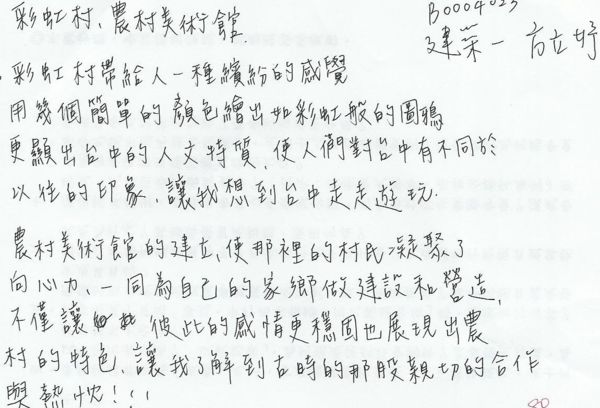 彩虹村、農村美術館.
B0004023
建築一 方立妤
彩虹村帶給人一種繽紛的感覺
用幾個簡單的顏色繪出如彩虹般的圖鴉
更顯出台中的人文特質、使人們對台中有不同於
以往的印象、讓我想到台中走走遊玩.
農村美術館的建立,使那裡的村民凝聚了
向心力、一同為自己的家鄉做建設和營造,
不僅讓 彼此的感情更穩固也展現出農
村的特色、讓我了解到古時的那股親切的合作
與熱忱!!!
80